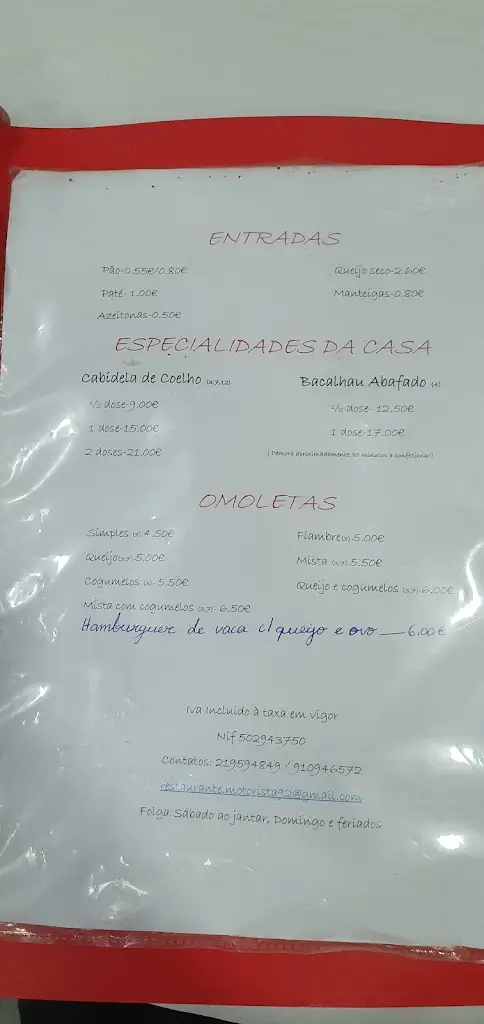 ENTRADAS
Pão-0.55€/0.80€
Queijo seco-2.60€
Paté- 1.00€
Manteigas-0.80€
Azeitonas-0.50€
ESPECIALIDADES DA CASA
Cabidela de Coelho (3,7,12)
Bacalhau Abafado (4)
1/2 dose-9.00€
1/2 dose- 12.50€
1 dose-15.00€
1 dose-17.00€
2 doses-21.00€
(Demora aproximadamente 30 minutos a confecionar)
OMOLETAS
Simples (3) 4.50€
Fiambre(3)-5.00€
Queijo(3,7)-5.00€
Mista (3,7)-5.50€
Cogumelos (3)- 5.50€
Queijo e cogumelos (3,7)-6.00€
Mista com cogumelos (3,7)- 6.50€
Hamburguer de vaca c/ queijo e ovo — 6.00€
Iva Incluido à taxa em vigor
Nif 502943750
Contatos: 219594849 / 910946572
restaurante.motorista92@gmail.com
Folga Sábado ao jantar, Domingo e feriados